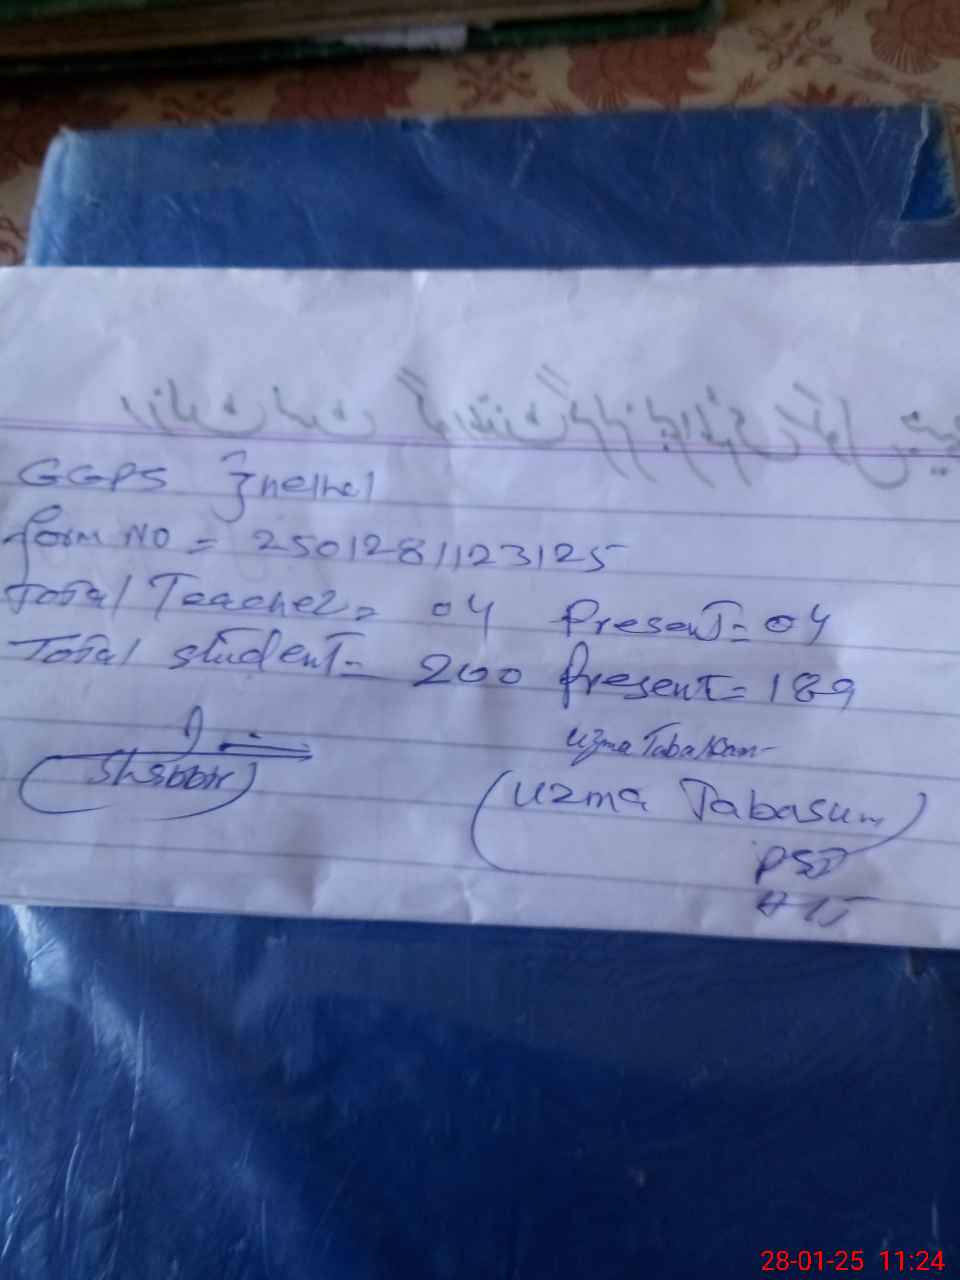 GGPS
Form NO = 2501281123125
Total Teacher = 04 Present = 04
Total student = 200 Present = 189
Uzma Tabassum
(Shabbir)
(Uzma Tabasum)
PST
28-01-25 11:24